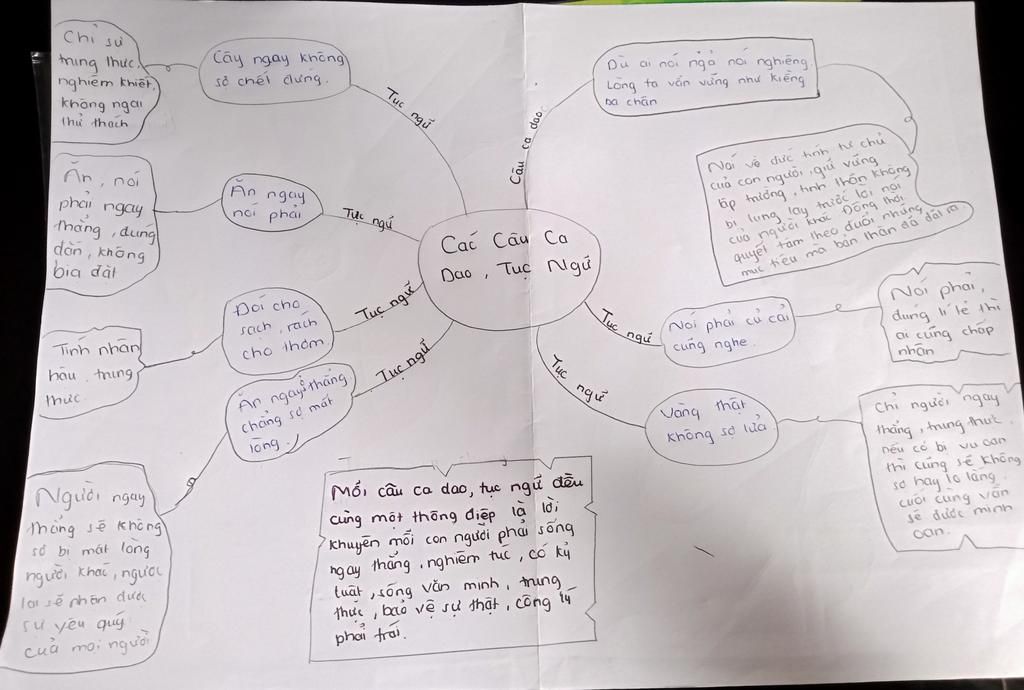 Các Câu Ca
Dao, Tục Ngữ
Tục ngữ
Cây ngay không
sợ chết đứng.
Chỉ sự
trung thực,
nghiêm khiết,
không ngại
thử thách
Tục ngữ
Ăn ngay
nói phải
Ăn, nói
phải ngay
thẳng, đúng
đắn, không
bịa đặt
Tục ngữ
Đói cho
sạch, rách
cho thơm.
Tính nhân
hậu, trung
thực.
Tục ngữ
Ăn ngay ở thẳng
chẳng sợ mất
lòng.
Người ngay
thẳng sẽ không
sợ bị mất lòng
người khác, ngược
lại sẽ nhận được
sự yêu quý
của mọi người
Câu ca dao
Dù ai nói ngả nói nghiêng
Lòng ta vẫn vững như kiềng
ba chân
Nói về đức tính tự chủ
của con người, giữ vững
lập trường, tinh thần không
bị lung lay trước lời nói
của người khác. Đồng thời
quyết tâm theo đuổi những
mục tiêu mà bản thân đã đặt ra
Tục ngữ
Nói phải củ cải
cũng nghe.
Nói phải,
đúng lí lẽ thì
ai cũng chấp
nhận
Tục ngữ
Vàng thật
không sợ lửa
Chỉ người ngay
thẳng, trung thực.
nếu có bị vu oan
thì cũng sẽ không
sợ hay lo lắng.
cuối cùng vẫn
sẽ được minh
oan.
Mỗi câu ca dao, tục ngữ đều
cùng một thông điệp là lời
khuyên mỗi con người phải sống
ngay thẳng, nghiêm túc, có kỷ
luật, sống văn minh, trung
thực, bảo vệ sự thật, công lý
phải trái.